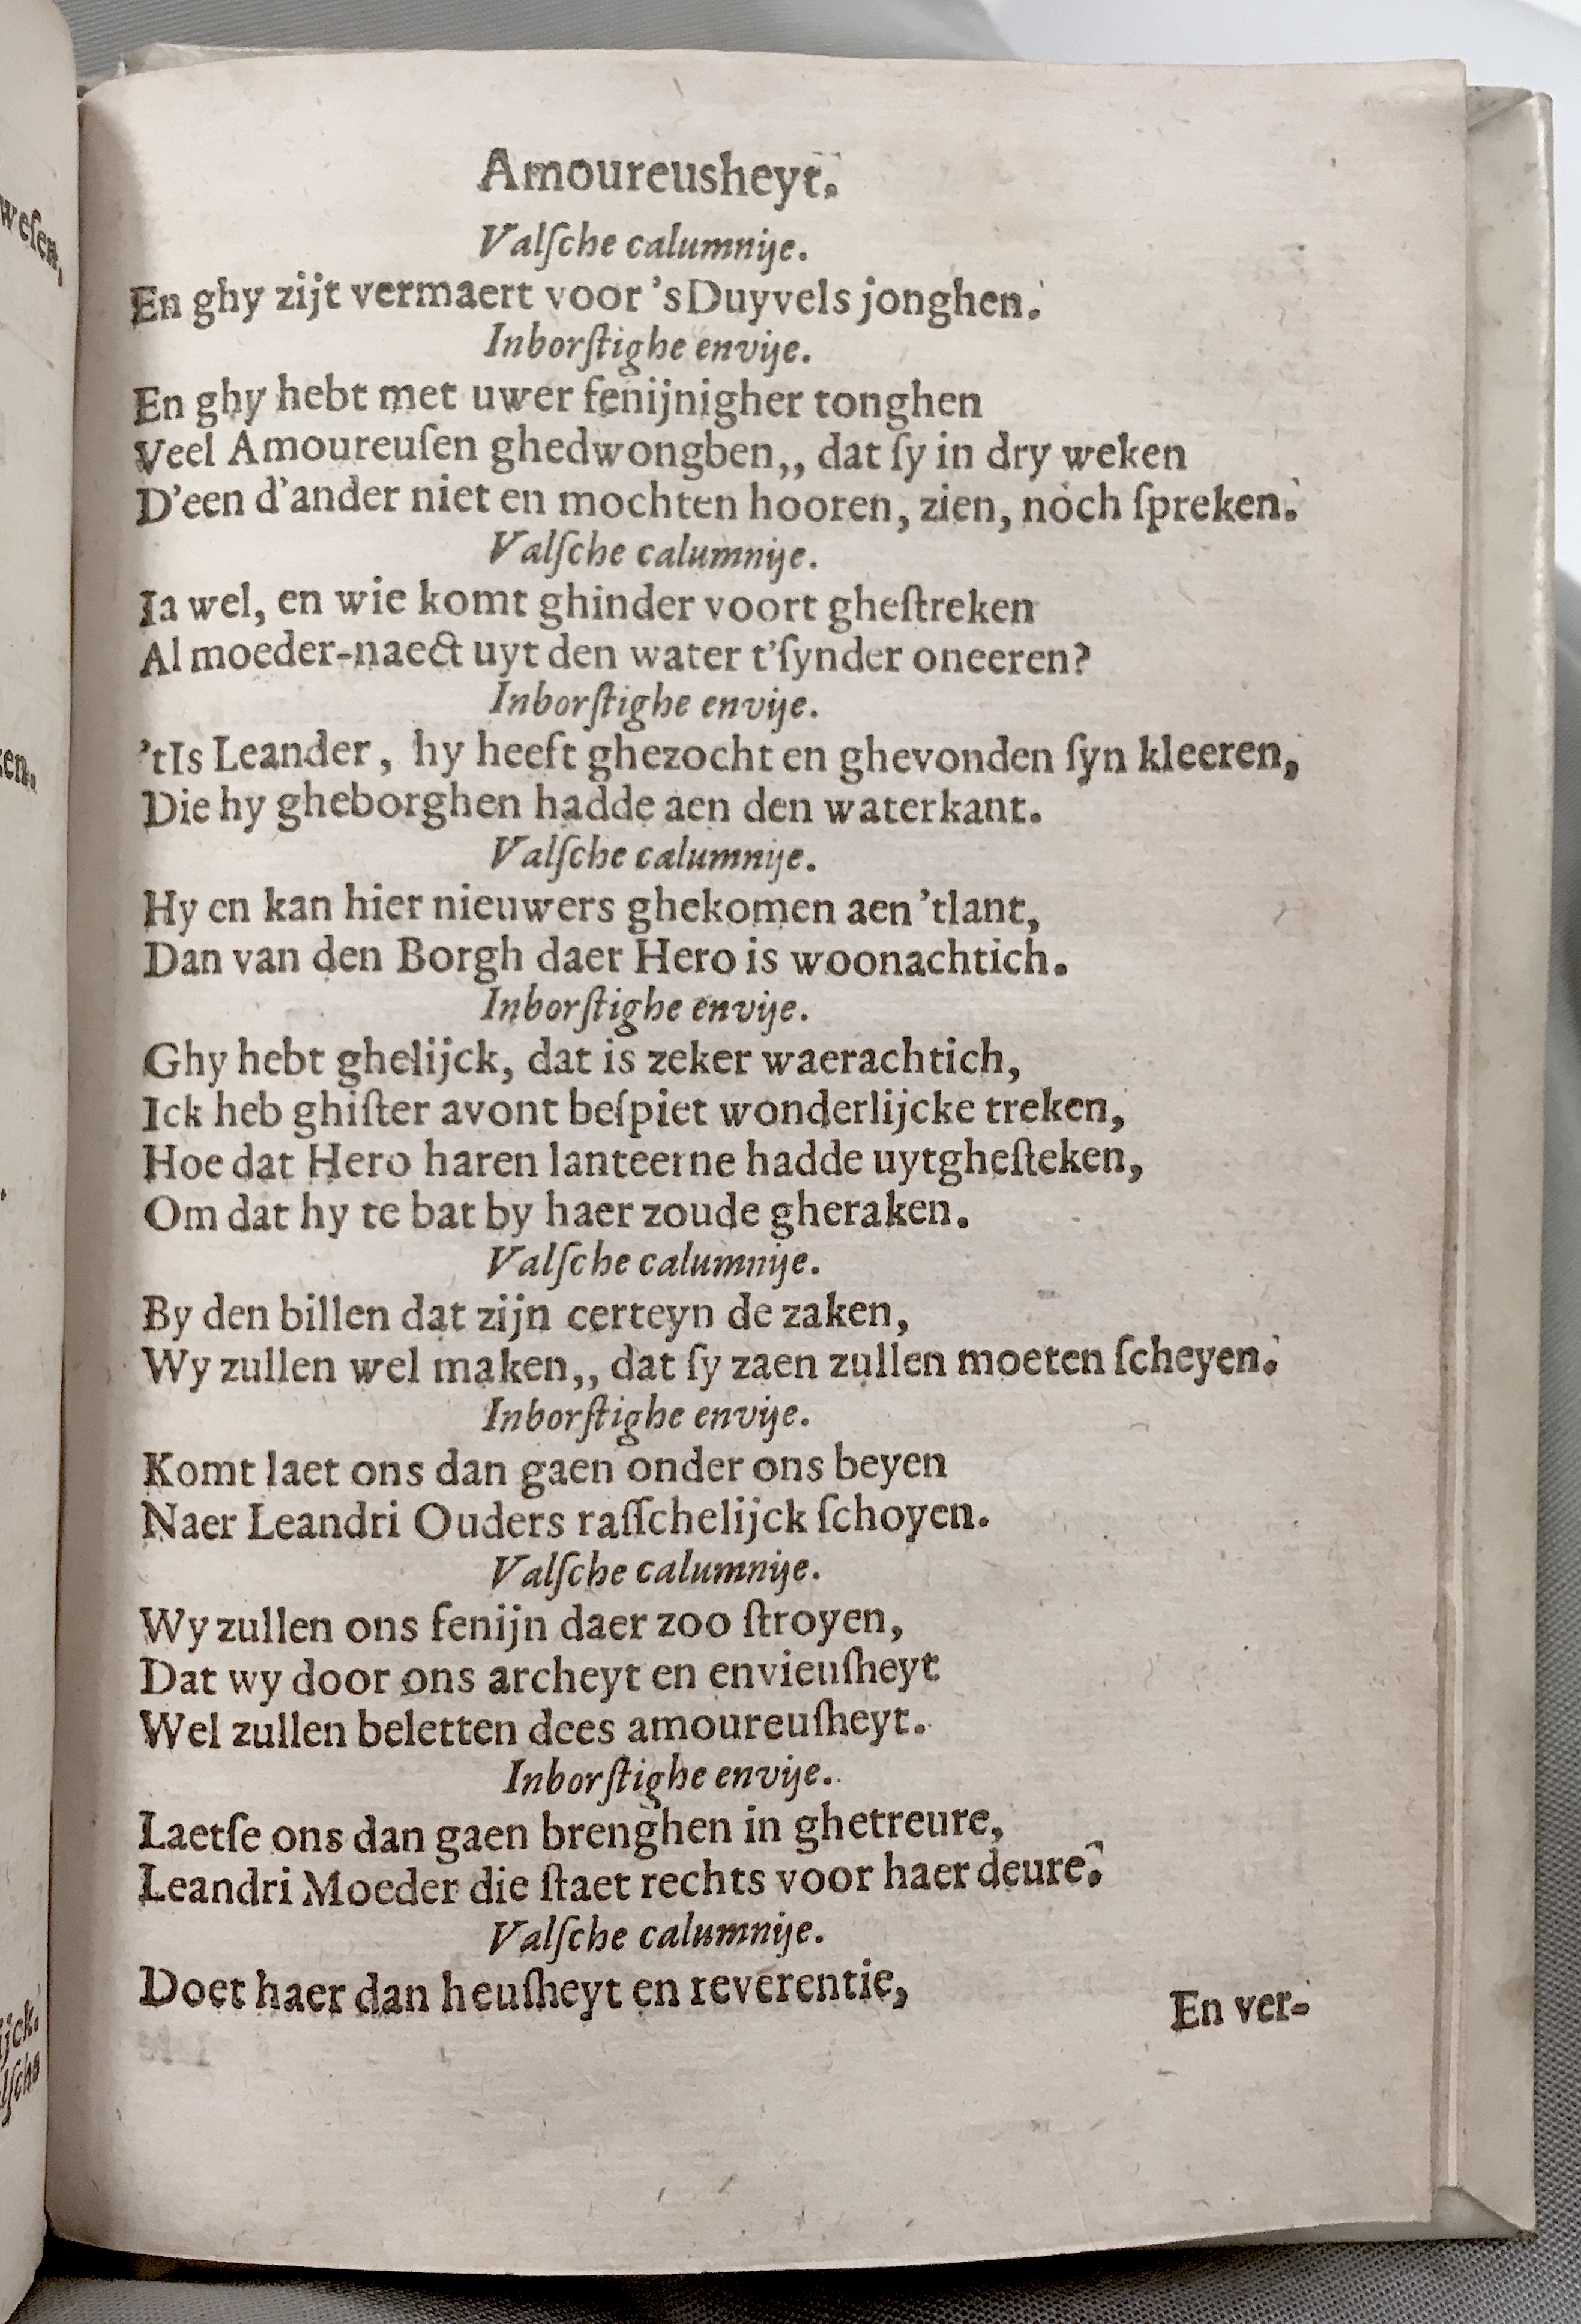 Amoureusheyt.
Valſche calumnije.
En ghy zijt vermaert voor 'sDuyvels jonghen.
Inborſtighe envije.
En ghy hebt met uwer fenijnigher tonghen
Veel Amoureuſen ghedwongben,, dat ſy in dry weken
D'een d'ander niet en mochten hooren, zien, nóch ſpreken.
Valſche calumnije.
Ia wel, en wie komt ghinder voort gheſtreken
Al moeder-naect uyt den water t'ſynder oneeren?
Inborſtighe envije.
'tIs Leander, hy heeft ghezocht en ghevonden ſyn kleeren,
Die hy gheborghen hadde aen den waterkant.
Valſche calumnije.
Hy en kan hier nieuwers ghekomen aen 'tlant,
Dan van den Borgh daer Hero is woonachtich.
Inborſtighe envije.
Ghy hebt ghelijck, dat is zeker waerachtich,
Ick heb ghiſter avont beſpiet wonderlijcke treken,
Hoe dat Hero haren lanteerne hadde uytgheſteken,
Om dat hy te bat by haer zoude gheraken.
Valſche calumnije.
By den billen dat zijn certeyn de zaken,
Wy zullen wel maken,, dat ſy zaen zullen moeten ſcheyen.
Inborſtighe envije.
Komt laet ons dan gaen onder ons beyen
Naer Leandri Ouders raſſchelijck ſchoyen.
Valſche calumnije.
Wy zullen ons fenijn daer zoo ſtroyen,
Dat wy door ons archeyt en envieuſheyt
Wel zullen beletten dees amoureuſheyt.
Inborſtighe envije.
Laetſe ons dan gaen brenghen in ghetreure,
Leandri Moeder die ſtaet rechts voor haer deure.
Valſche calumnije.
Doet haer dan heuſheyt en reverentie,
En ver-